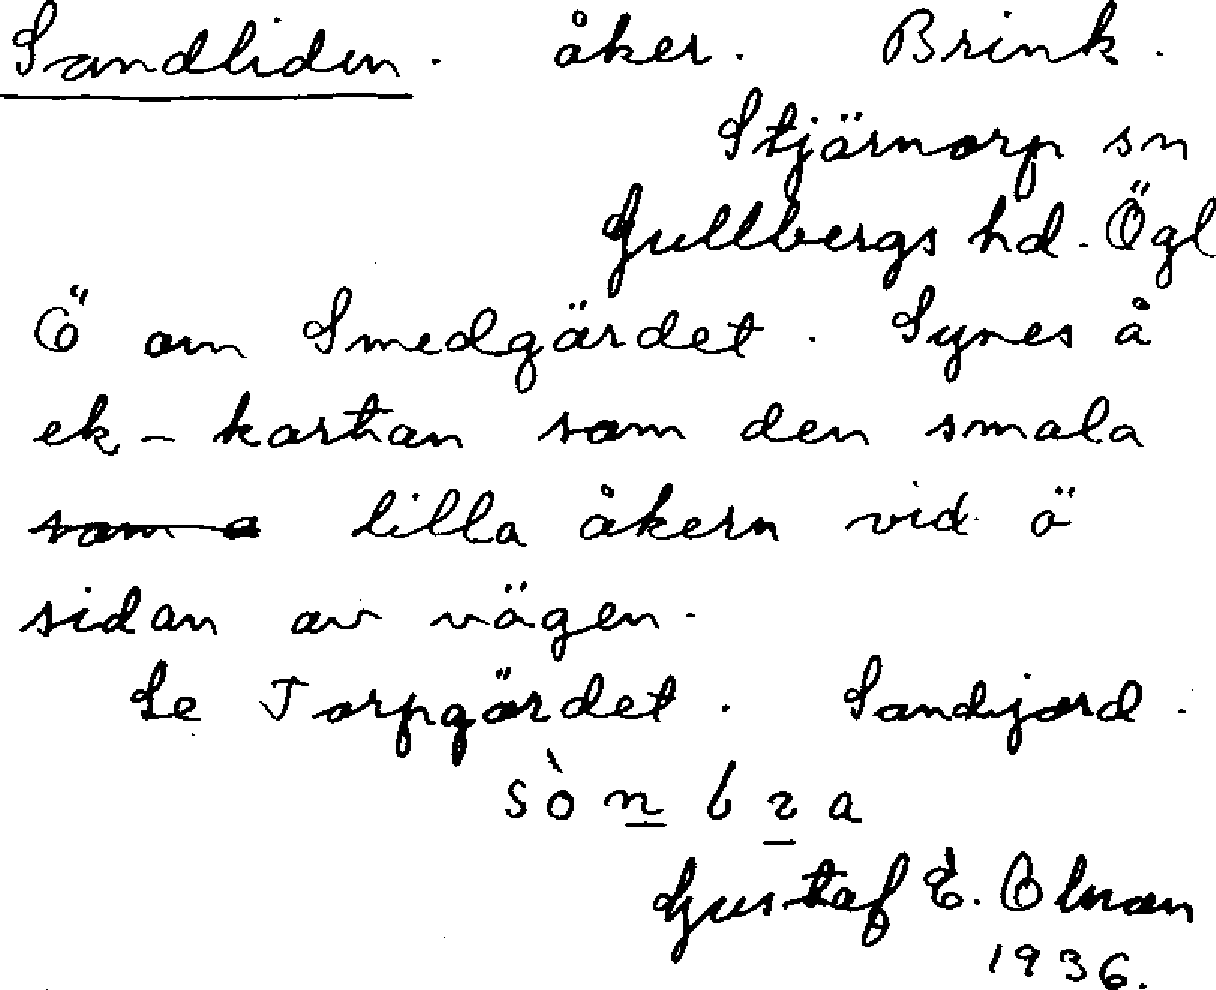 Sandliden. åker. Brink.
Stjärnorp sn
Gullbergs hd. Ögl
Ö om Smedgärdet. Synes å
ek-kartan som den smala
lilla åkern vid ö
sidan av vägen.
Se Torpgärdet. Sandjord.
Gustaf E. Olman
1936.